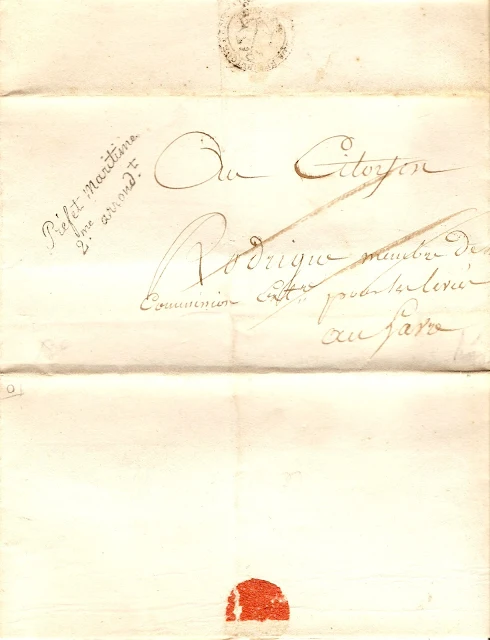 Préfet Maritime
2.me arrond.t
Au Citoyen
Rodrigue membre de
Commission Ext.re pour les levées
au havre